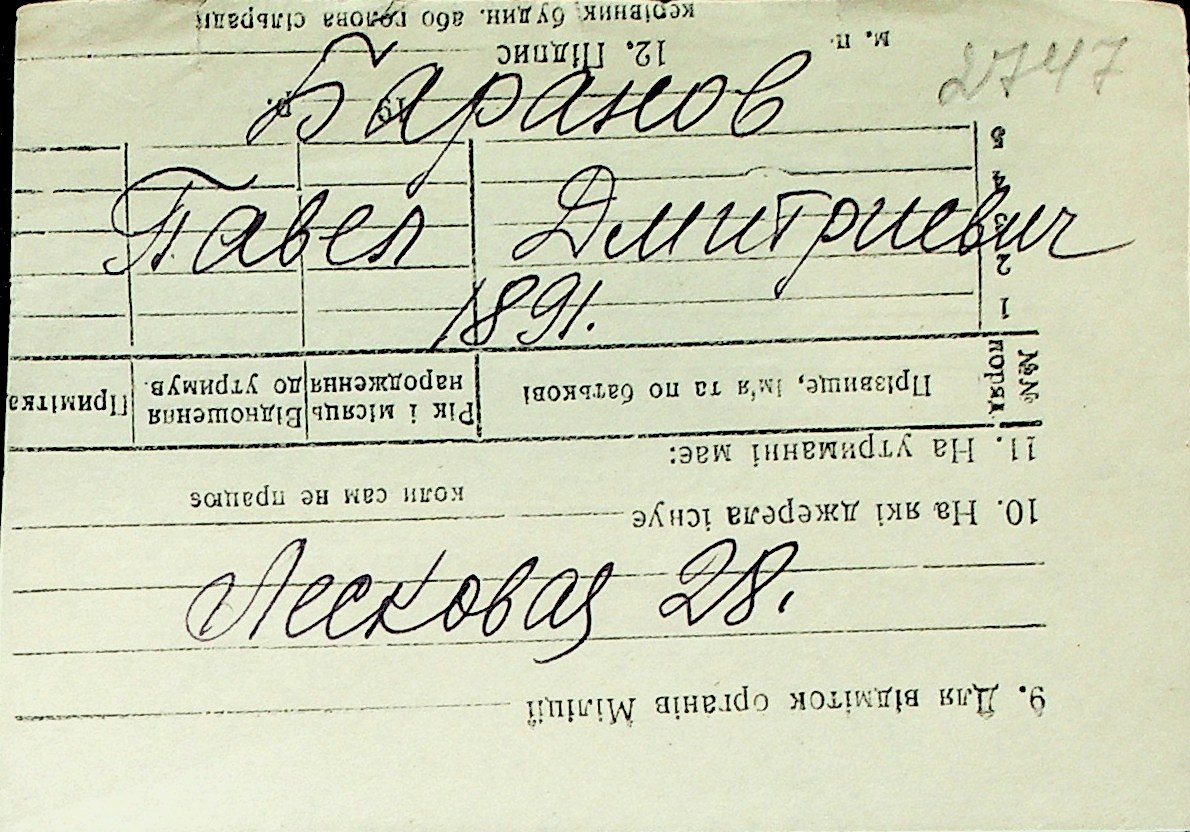 2747
Баранов
Павел Дмитриевич
1891.
Лесковая 28.
9. Для відміток органів Міліції
10. На які джерела існує
коли сам не працює
11. На утриманні має:
№№ поряд.
Прізвище, ім'я та по батькові
Рік і місяць народження
Відношення до утримув.
Примітка
1
2
3
4
5
19 р.
м. п.
12. Підпис
керівник будин. або голова сільради